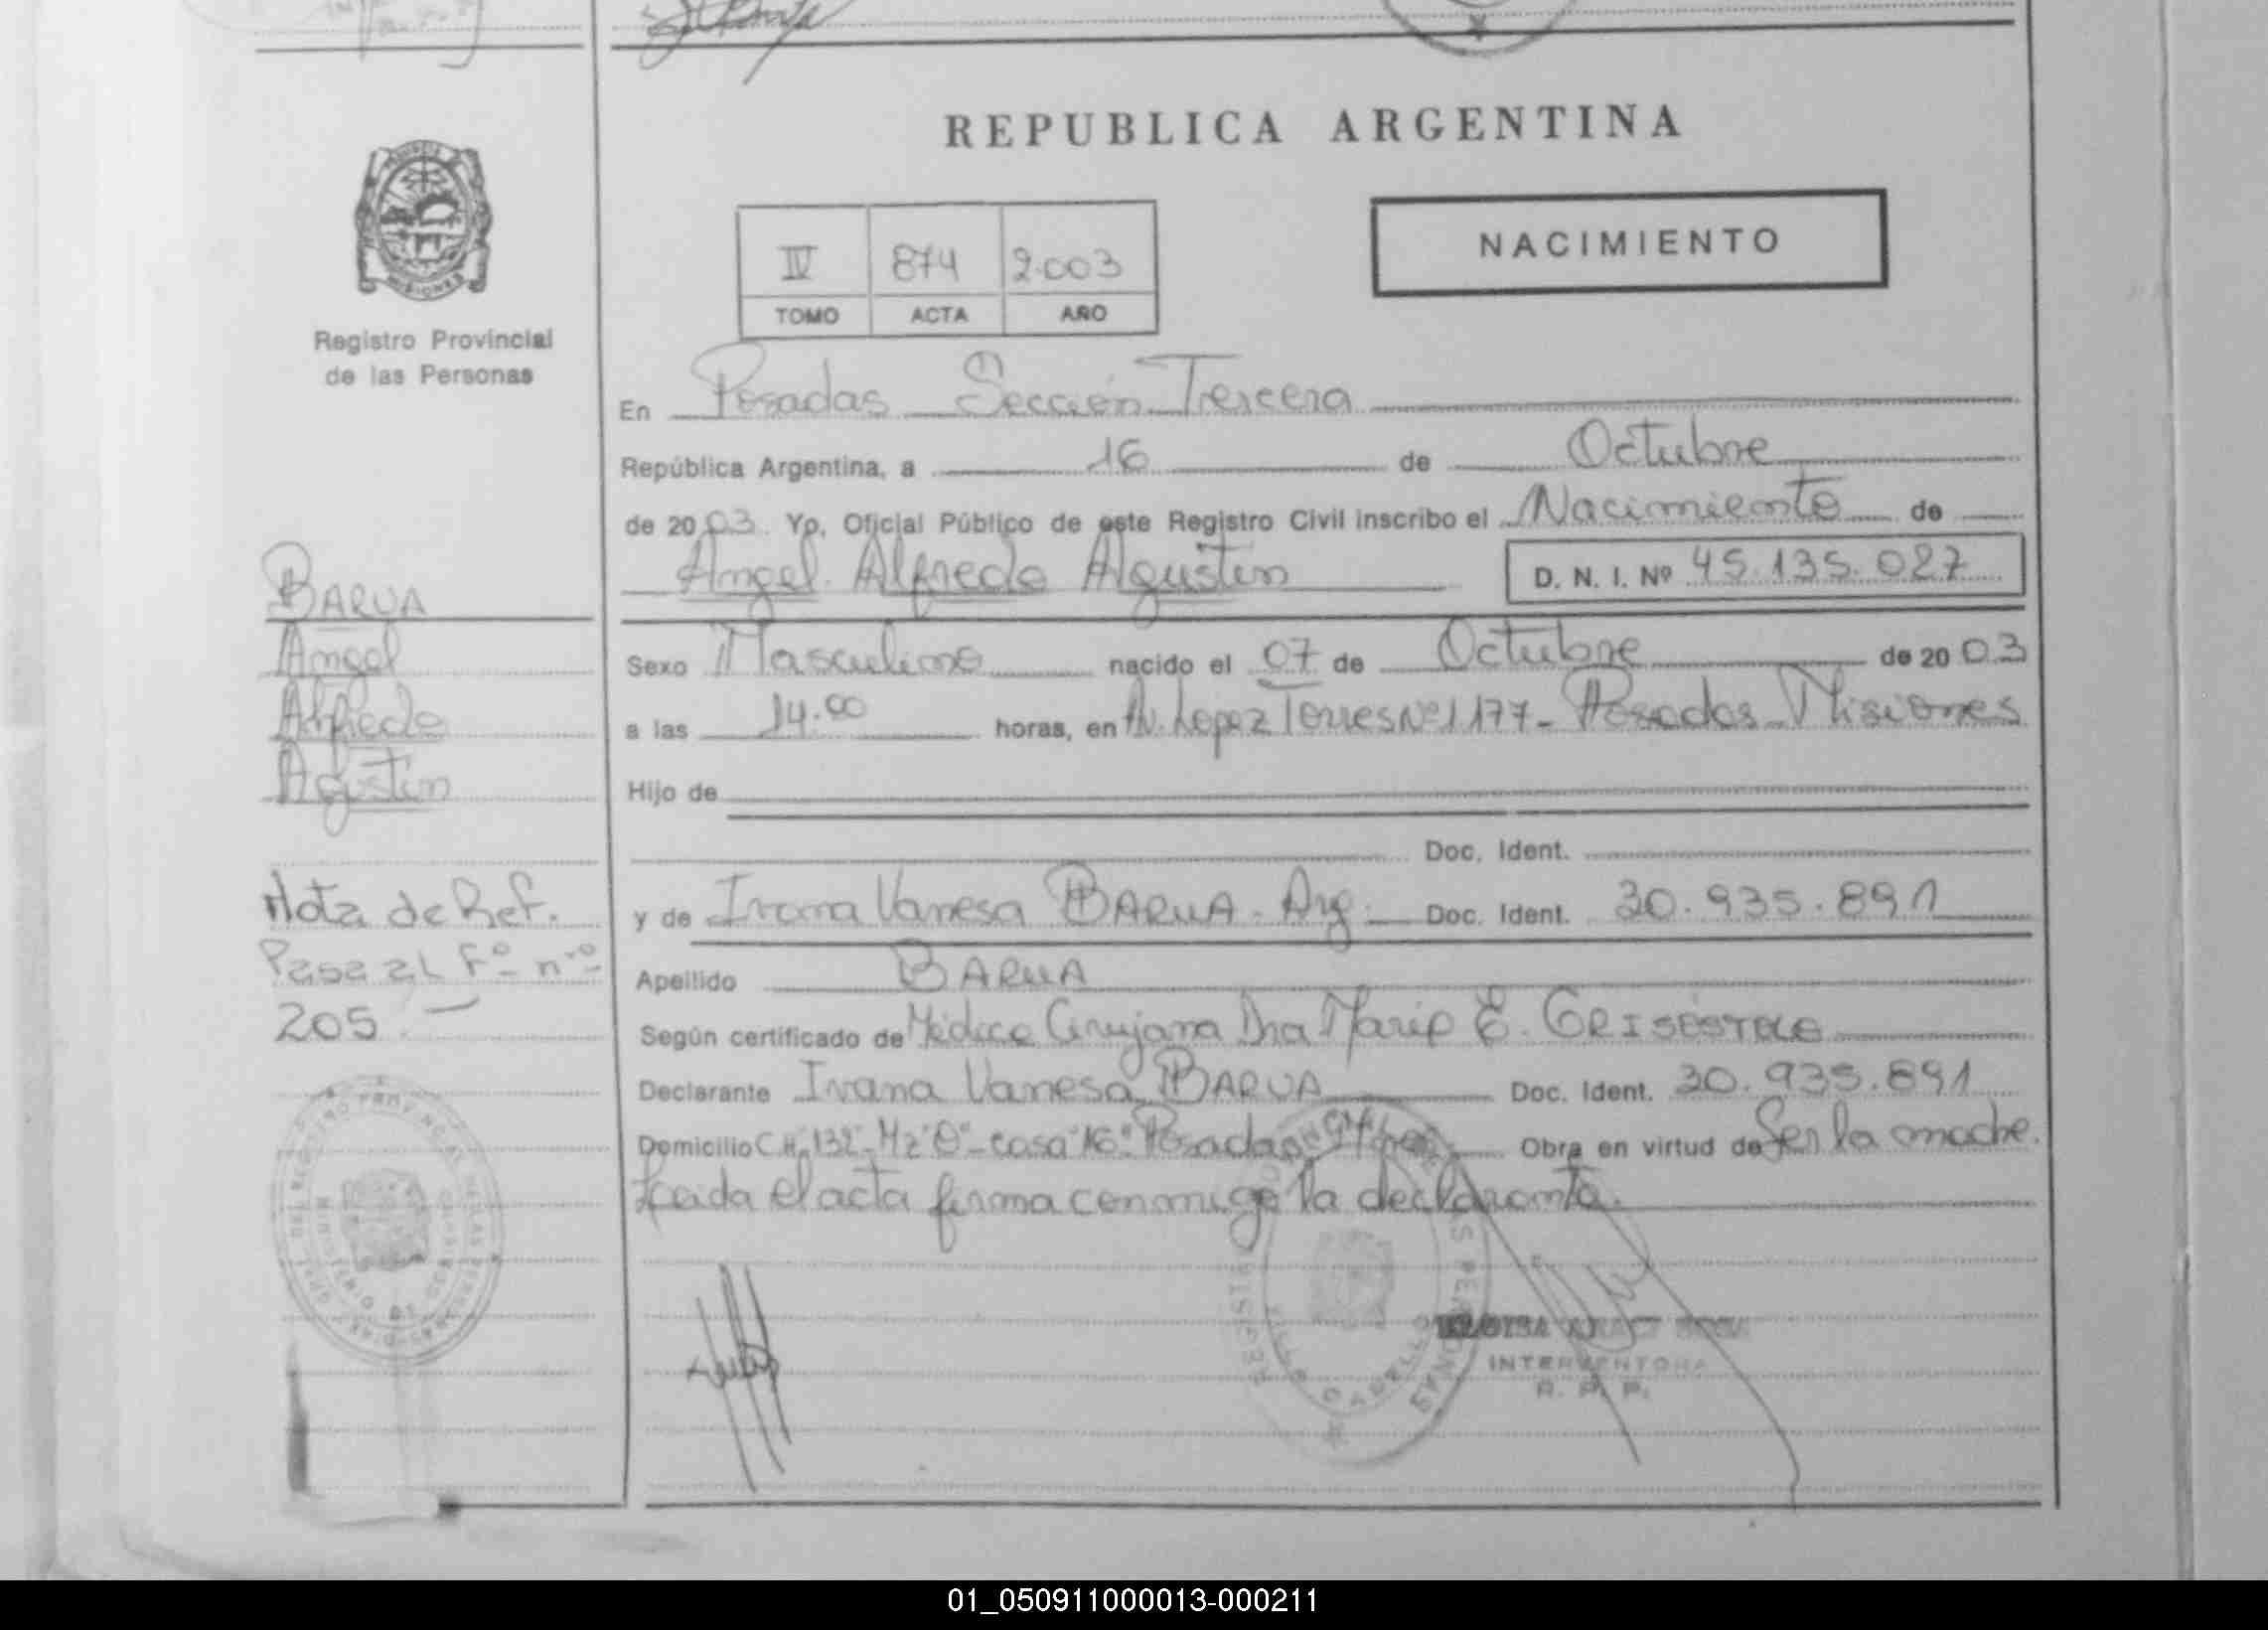 REPUBLICA ARGENTINA
NACIMIENTO
IV 874 2.003
TOMO ACTA AÑO
MISIONES
Registro Provincial
de las Personas
En Posadas Sección Tercera
República Argentina, a 16 de Octubre
de 2003. Yo, Oficial Público de este Registro Civil inscribo el Nacimiento de
Angel Alfredo Agustin D. N. I. Nº 45.135.027
BARUA
Angel
Alfredo
Agustin
Sexo Masculino nacido el 07 de Octubre de 2003
a las 14.00 horas, en Av. Lopez Torres Nº 1177- Posadas Misiones
Hijo de
Doc. Ident.
y de Ivana Vanesa BARUA. Arg. Doc. Ident. 30.935.891
Nota de Ref.
Pasa al Fº nro
205.-
Apellido BARUA
Según certificado de Médico Cirujana Dra E.
Declarante Ivana Vanesa BARUA Doc. Ident. 30.935.891
Domicilio CH. 132- Mz "O"- casa "16" Posadas Obra en virtud de Ser la madre.
Leida el acta firma conmigo la declarante.
INTERVENTORA
R. P. P.
01_050911000013-000211